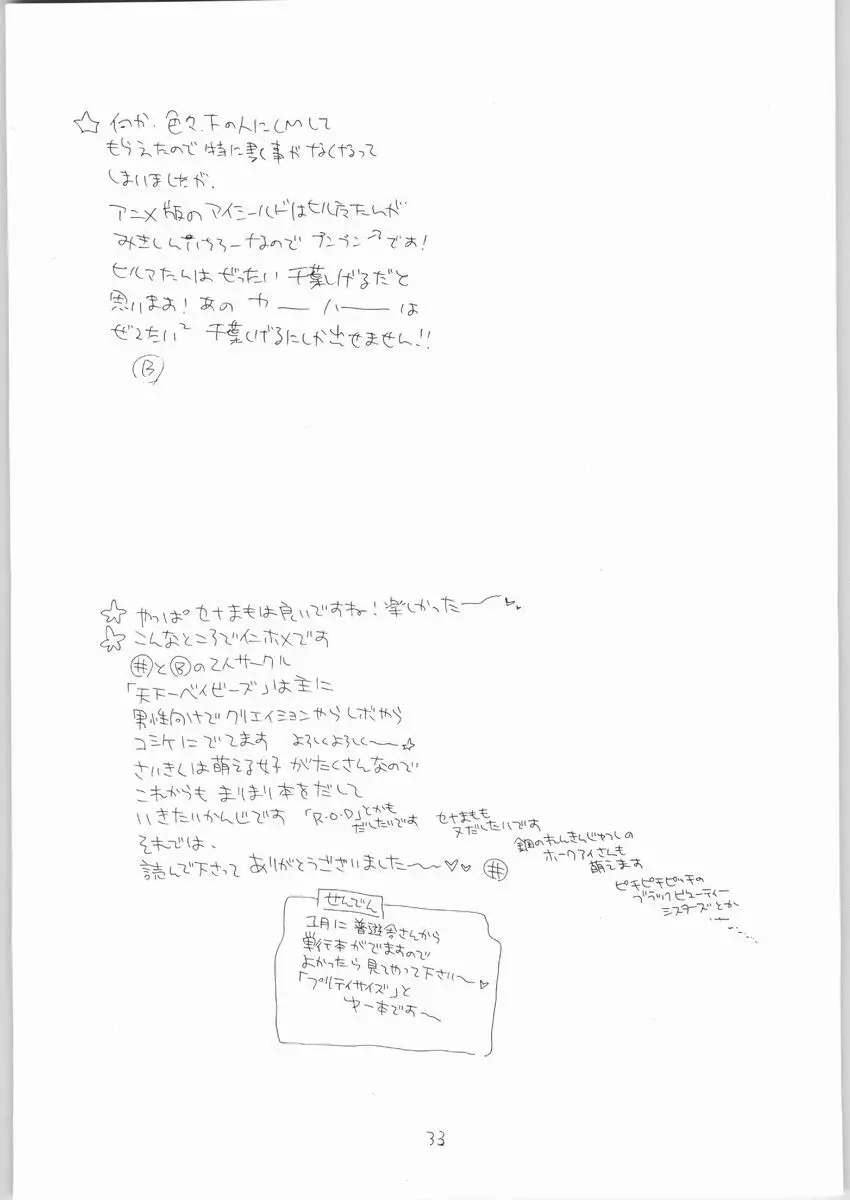 ☆ 何か、色々、下の人にCMして
もらえたので特に書く事がなくなって
しまいましたが、
アニメ版のアイシールドはヒルマたんが
みきしんいちろーなのでプンプンです!
ヒルマたんはぜったい千葉しげるだと
思います!あの カーーハーーは
ぜったい² 千葉しげるにしか出せません!!
B
☆ やっぱセナまもは良いですね!楽しかったー〜♡
☆ こんなところでインホメです
#とBの2人サークル
「天下一ベイビーズ」は主に
男性向けでクリエイションやらレボやら
コミケにでてます よろしくよろしく〜☆
さいきんは萌える女子がたくさんなので
これからもまりまり本をだして
いきたいかんじです 「R.O.D」とかも
だしたいです
セナまもも
又だしたいです
鋼のれんきんじゅつしの
ホークアイさんも
萌えます
ピチピチピッチの
ブラックビューティー
シスターズとか
それでは、
読んで下さってありがとうございました〜〜♡♡ #
せんでん
1月に 普遊舎さんから
単行本がでますので
よかったら見てやって下さい〜♡
「プリティサイズ」と
ゆー本です〜
33